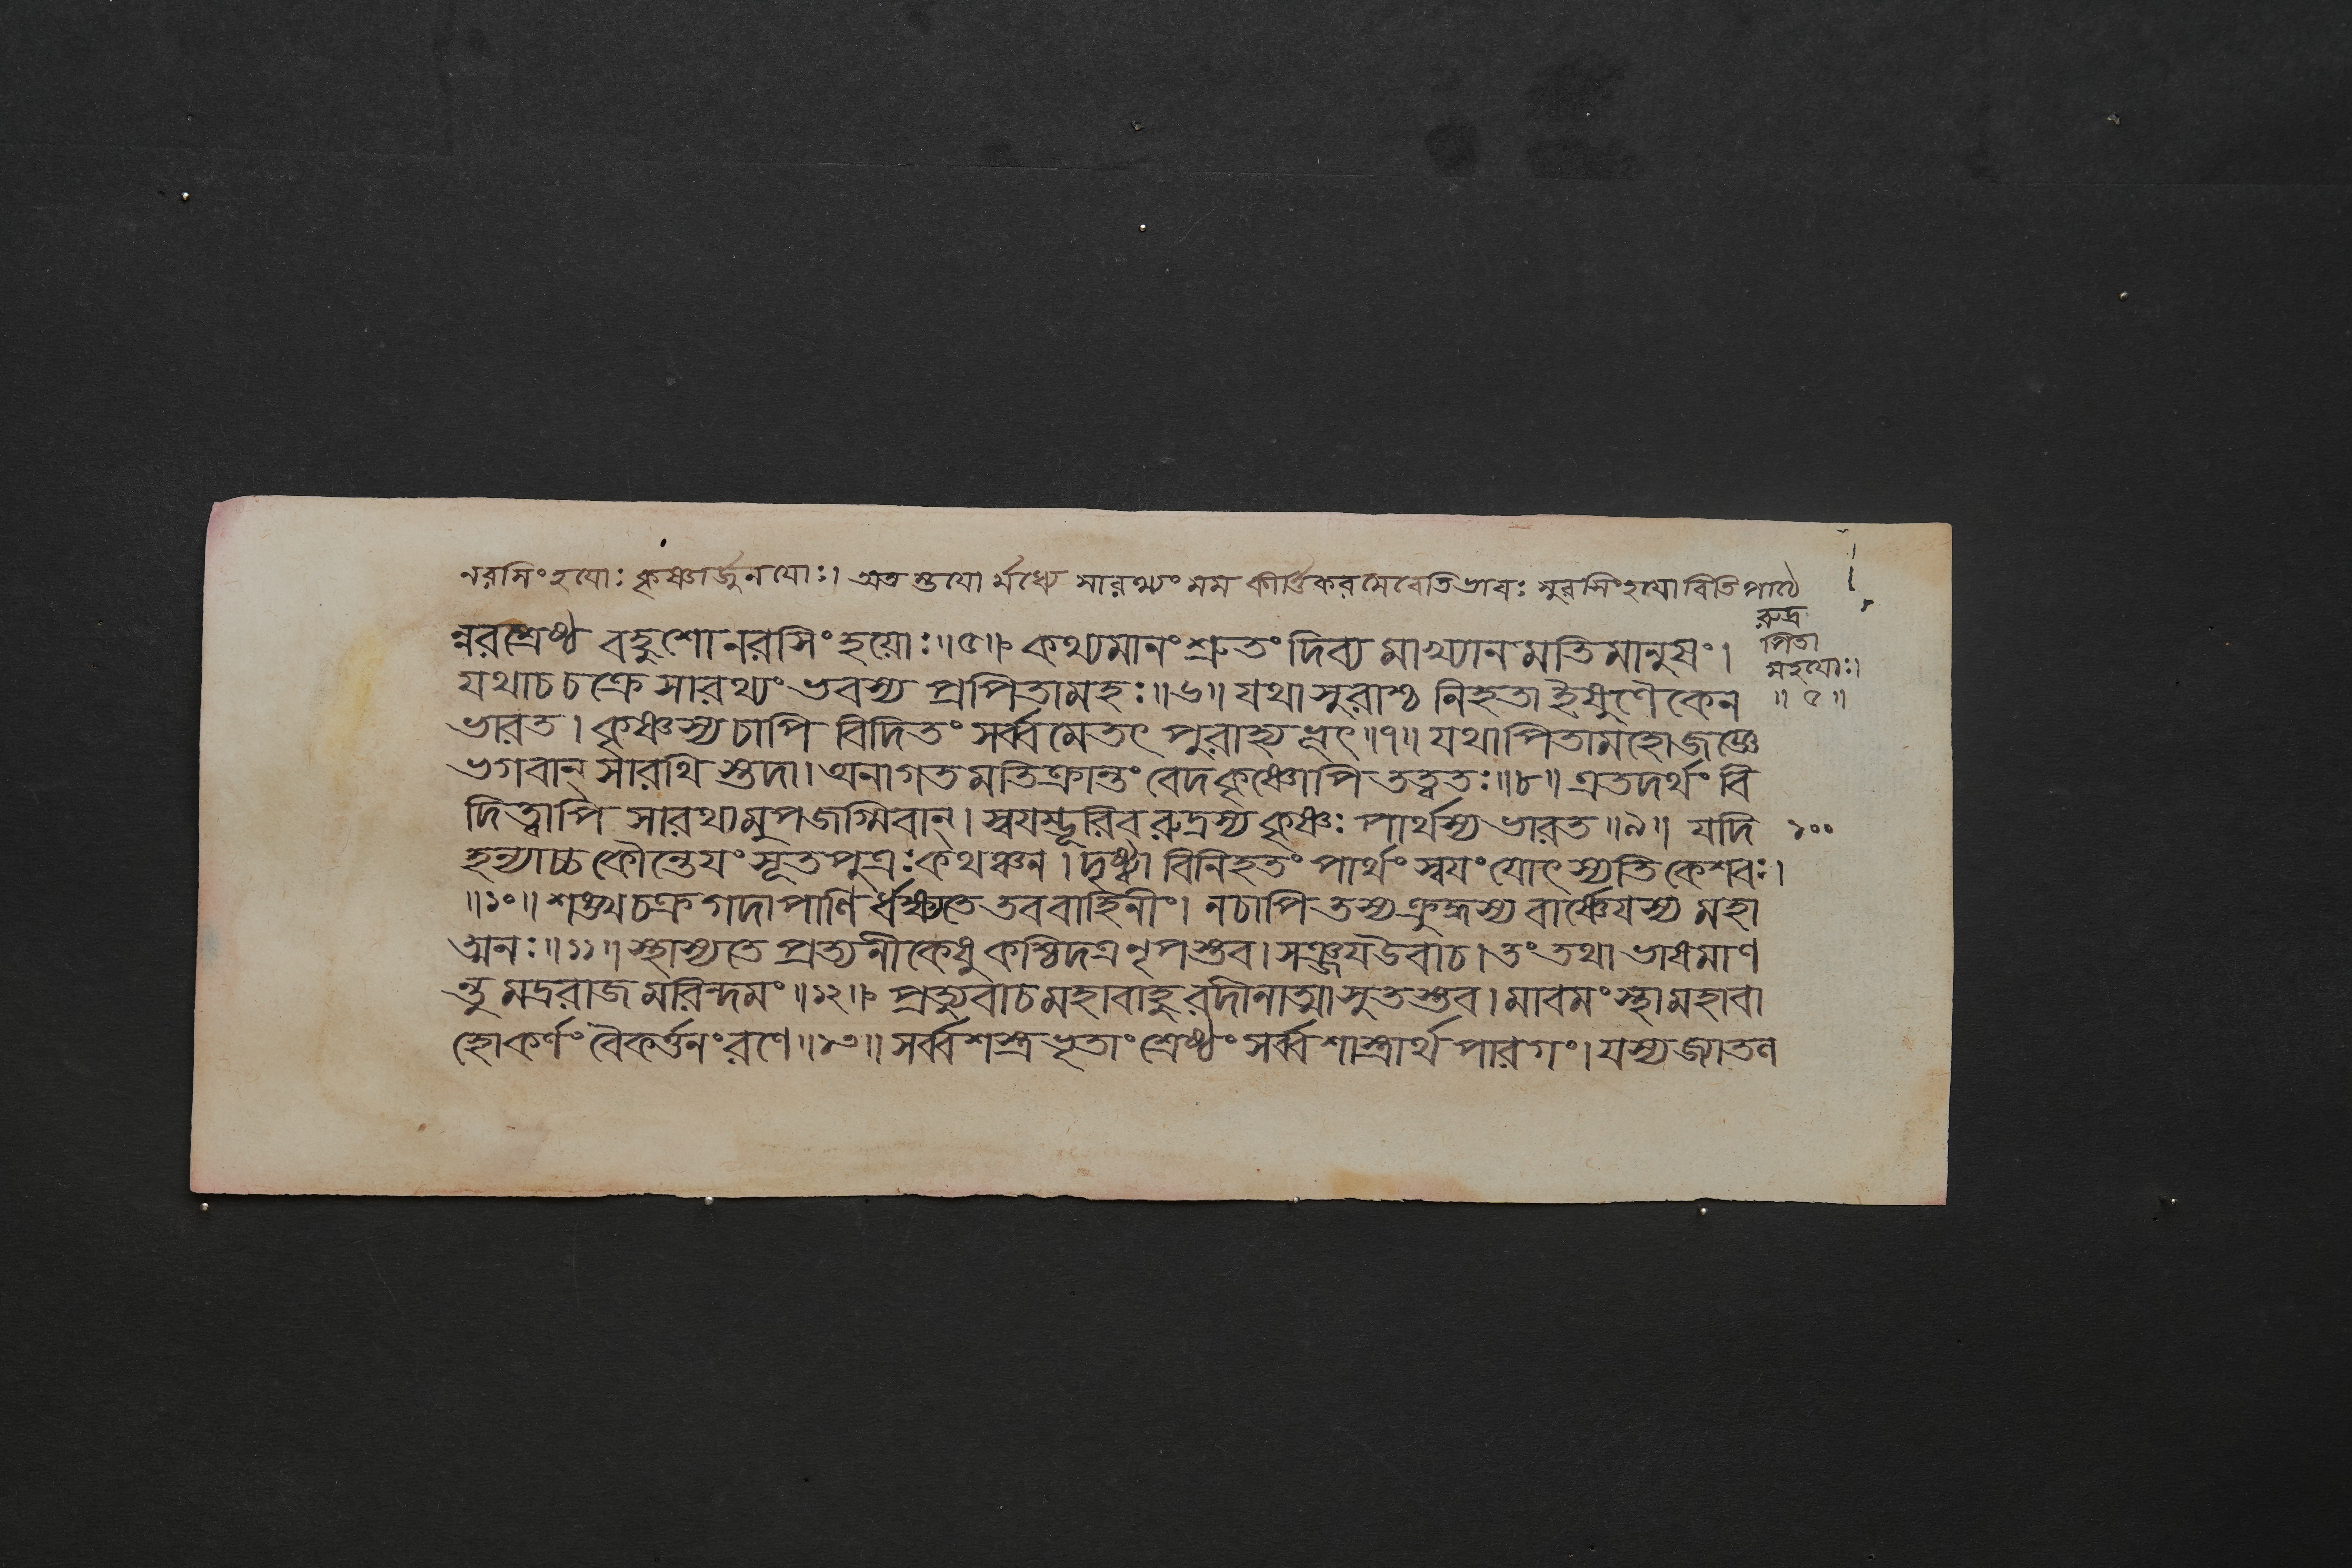 নরসিংহযোঃ কৃষ্ণার্জুনযোঃ। অত স্তুযো র্মধ্যে সারথ্যং মম কীর্ত্তিকরমেবেতিভাবঃ সুরসিংহযোরিতি পাঠে
রুদ্র
পিতা
মহযোঃ।
॥ ৫ ॥
ন্নরশ্রেষ্ঠ বহুশো নরসিংহয়োঃ॥৫॥ কথ্যমানং শ্রুতং দিব্য মাখ্যান মতি মানুষং।
যথাচ চক্রে সারথ্যং ভবস্য প্রপিতামহঃ॥৬॥ যথাসুরাশ্চ নিহতা ইষুণৈকেন
ভারত। কৃষ্ণস্যচাপি বিদিতং সর্ব্বমেতৎ পুরাহ্যভূৎ॥৭॥ যথাপিতামহোজজ্ঞে
ভগবান্ সারথি স্তদা। অনাগত মতিক্রান্তং বেদকৃষ্ণোপি তত্বতঃ॥৮॥ এতদর্থং বি
দিত্বাপি সারথ্যমুপজগ্মিবান্। স্বযম্ভূরিব রুদ্রস্য কৃষ্ণঃ পার্থস্য ভারত॥৯॥ যদি
১০০
হন্যাচ্চ কৌন্তেযং সূতপুত্রঃ কথঞ্চন। দৃষ্ট্বা বিনিহতং পার্থং স্বযং যোৎস্যতি কেশবঃ।
॥১০॥ শঙ্খচক্রগদাপাণি র্ধক্ষ্যতে তববাহিনীং। নচাপি তস্যক্রুদ্ধস্য বার্ষ্ণেযস্য মহা
ত্মনঃ॥১১॥ স্থাস্যতে প্রত্যনীকেষু কশ্চিদত্র নৃপস্তব। সঞ্জযউবাচ। তং তথা ভাষমাণ
ন্তু মদ্ররাজ মরিন্দমং॥১২॥ প্রত্যুবাচ মহাবাহুরদীনাত্মা সুতস্তব। মাবমংস্থা মহাবা
হো কর্ণং বৈকর্ত্তনং রণে॥১৩॥ সর্ব্বশস্ত্রভৃতাং শ্রেষ্ঠং সর্ব্বশাস্ত্রার্থ পারগং। যস্যজ্যাতল